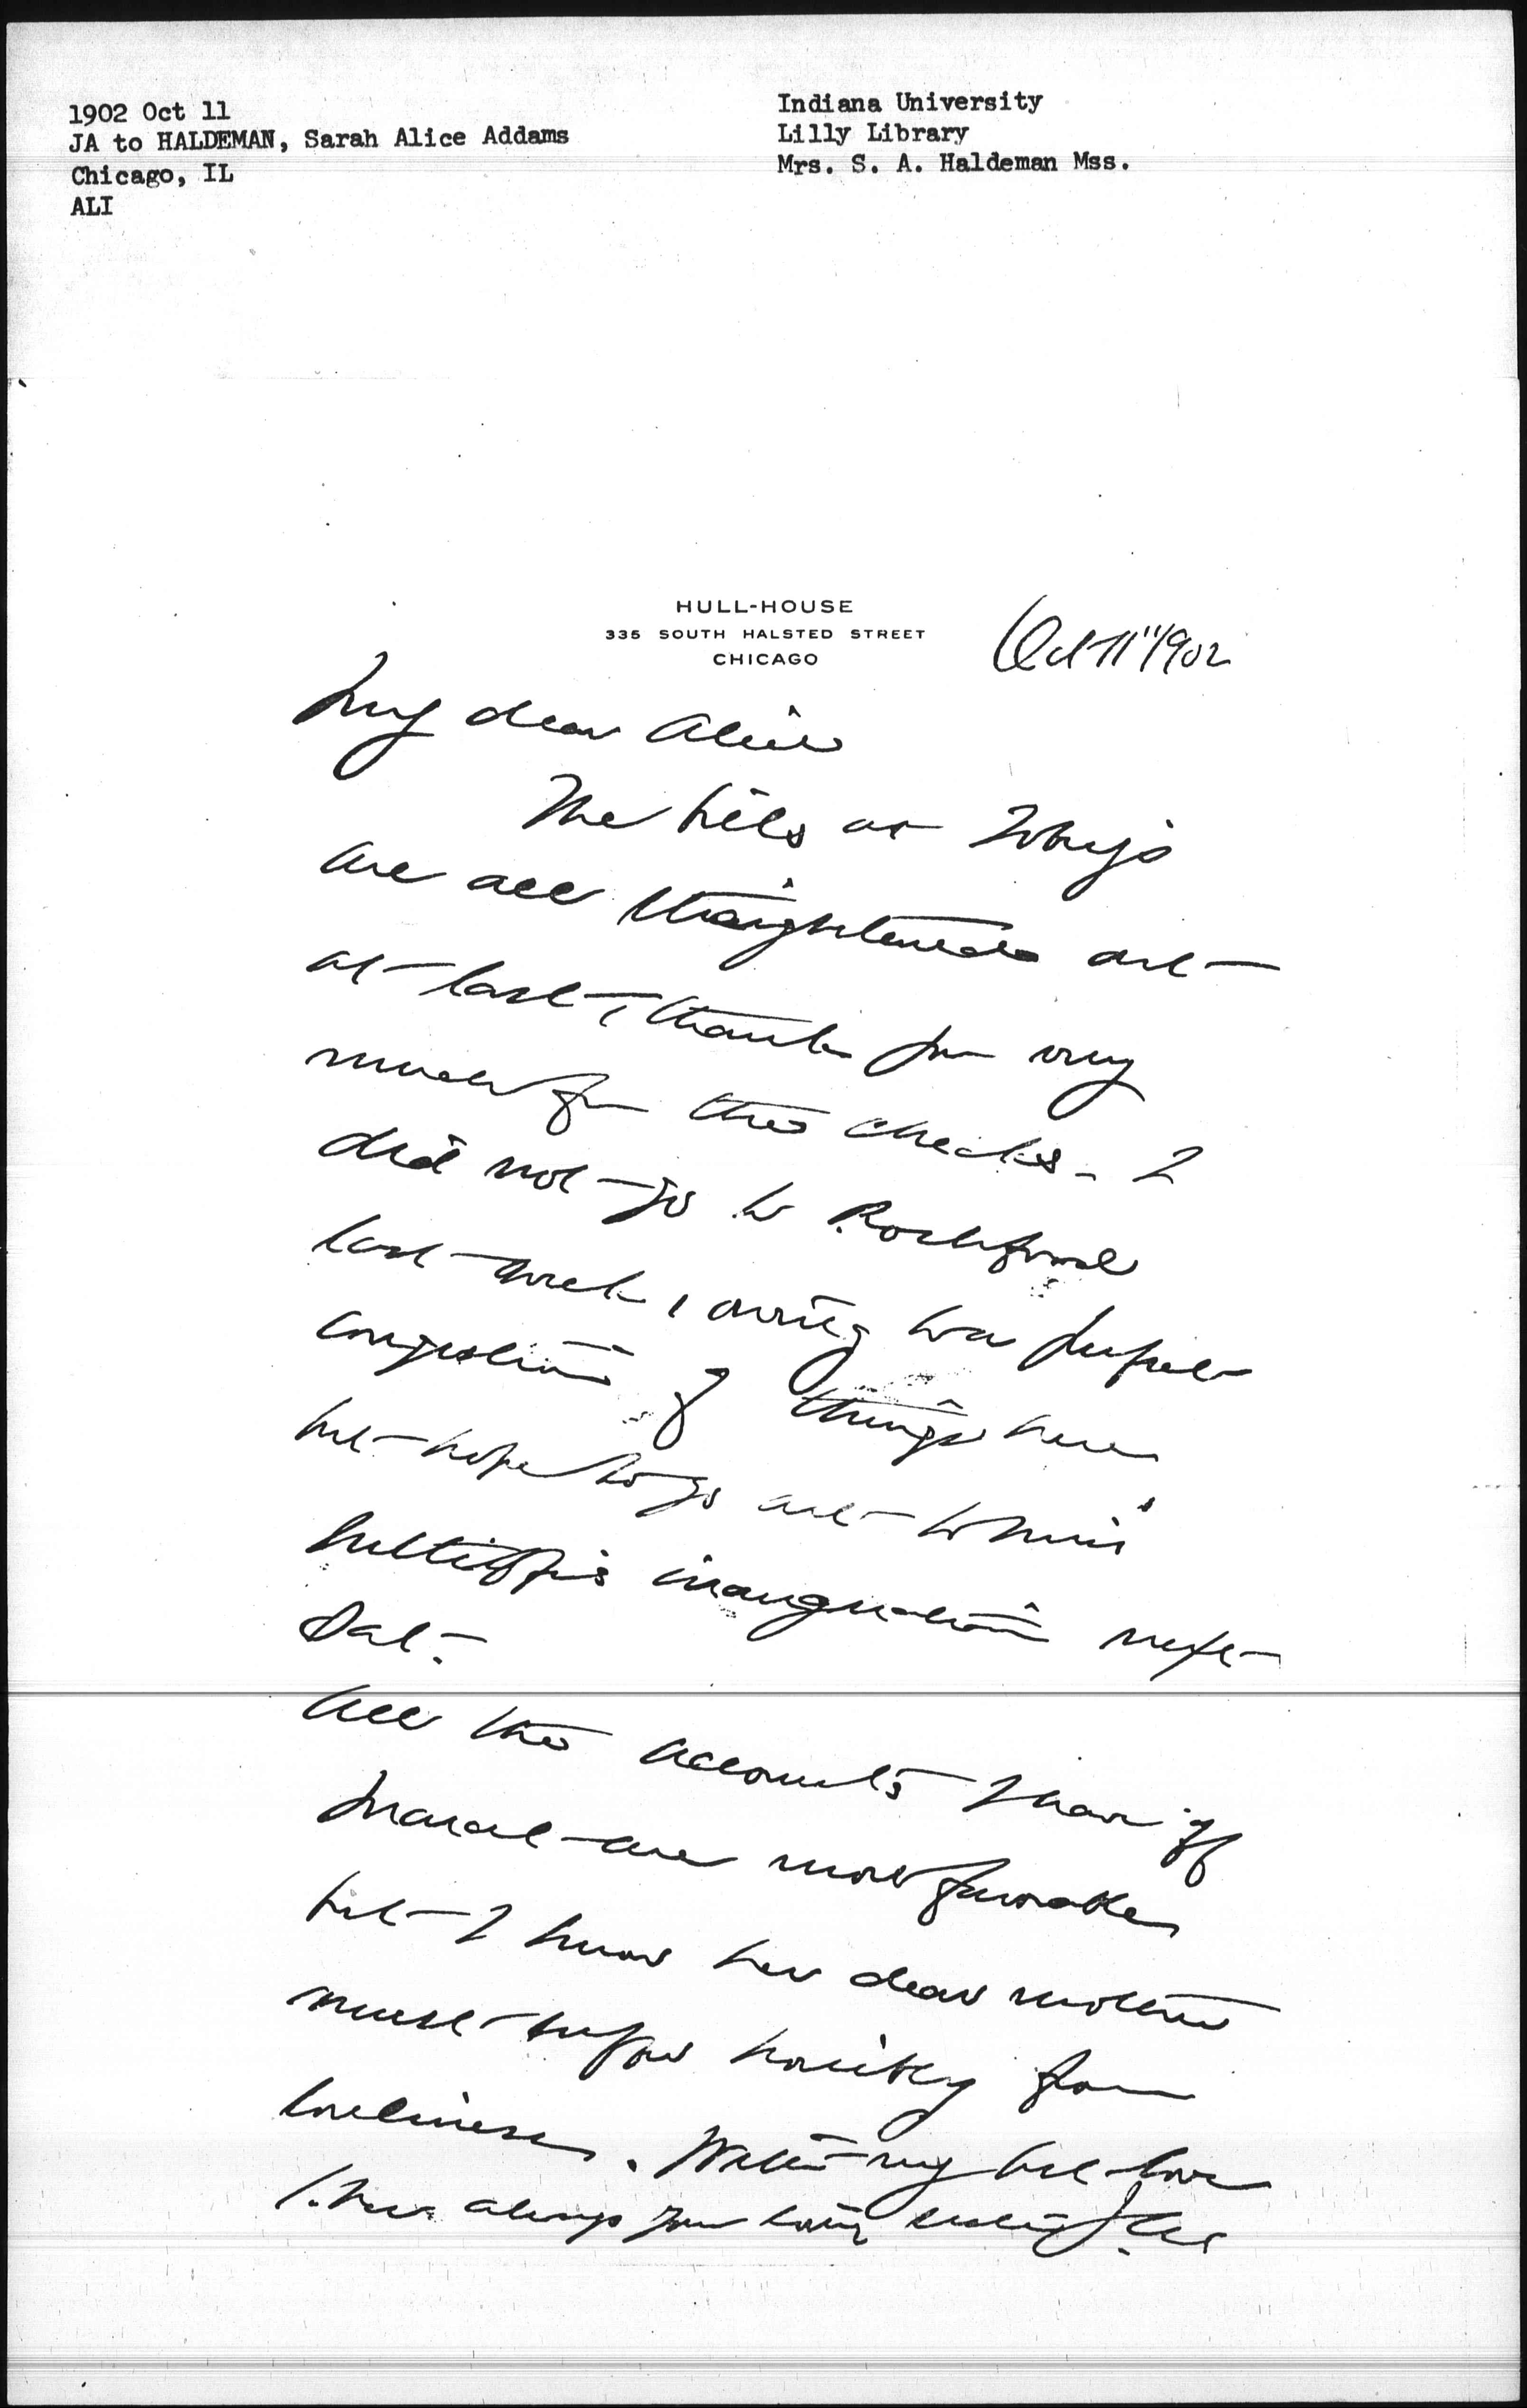 1902 Oct 11
JA to HALDEMAN, Sarah Alice Addams
Chicago, IL
ALI
Indiana University
Lilly Library
Mrs. S. A. Haldeman Mss.
HULL-HOUSE
335 SOUTH HALSTED STREET
CHICAGO
Oct 11" 1902
My dear Alice
The bills at Tobey's
are all straightened out
at last, thank you very
much for the checks - I
did not go to Rockford
last week, owing to a
congestion of things here
but hope to go out to Miss
Gulliver's inauguration next
Sat.
All the accounts I hear of
Marcet are most favorable,
but I know her dear mother
must suffer horribly from
loneliness. With my best love
I am always your loving sister Jane